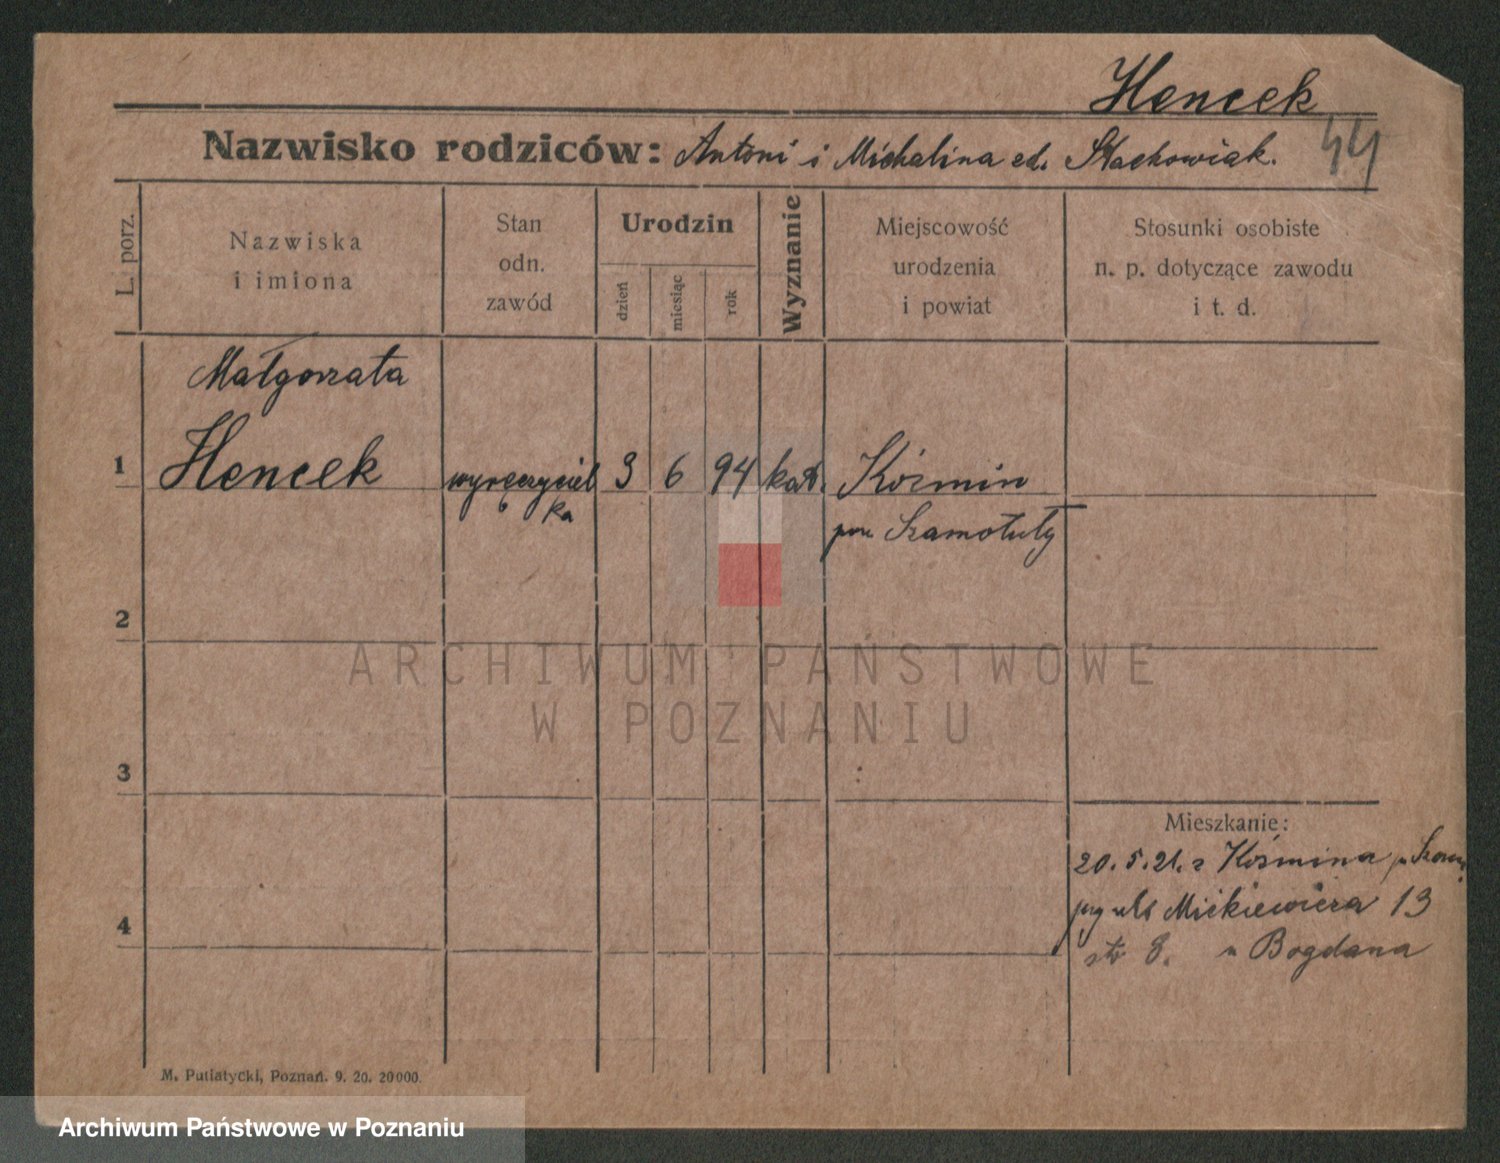 Hencek
44
Nazwisko rodziców: Antoni i Michalina zd. Stachowiak.
L. porz.
Nazwiska
i imiona
Stan
odn.
zawód
Urodzin
dzień
miesiąc
rok
Wyznanie
Miejscowość
urodzenia
i powiat
Stosunki osobiste
n. p. dotyczące zawodu
i t. d.
Małgorzata
1 Hencek wyręczyciel 3 6 94 kat. Koźmin
ka pow Szamotuły
2
ARCHIWUM PAŃSTWOWE
W POZNANIU
3
Mieszkanie:
20.5.21. z Koźmina p Szam.
przy ul Mickiewicza 13
4
8. u Bogdana
M. Putiatycki, Poznań. 9. 20. 20000.
Archiwum Państwowe w Poznaniu